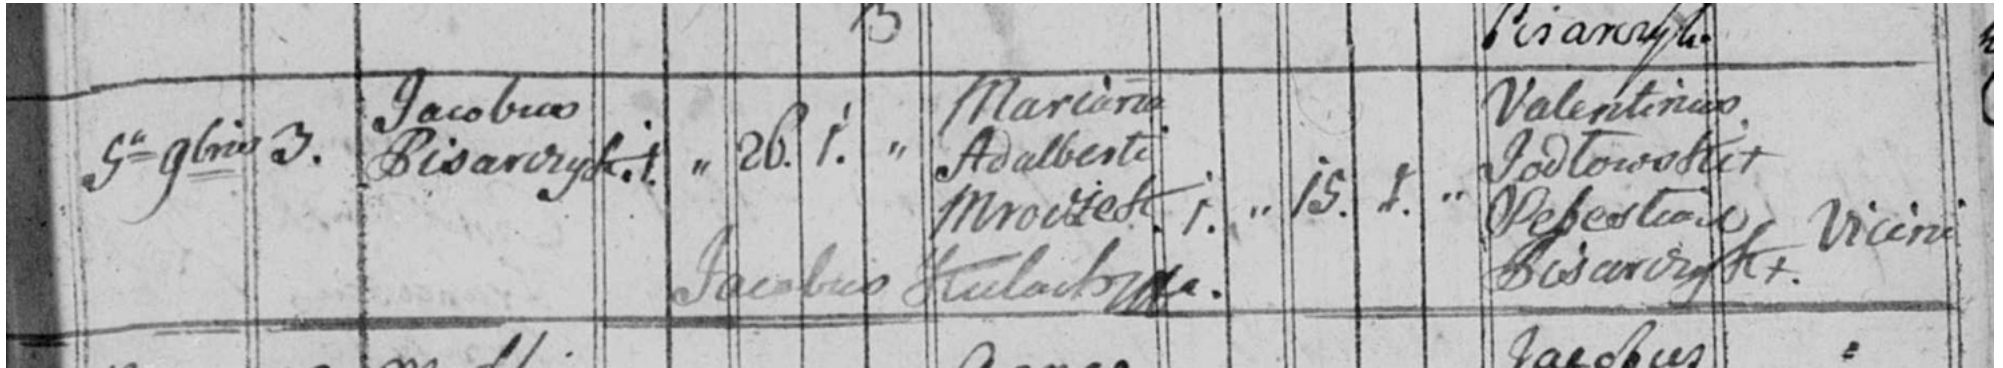 Pisarczyk
5ta 9bris 3. Jacobus
Pisarczyk. 1. " 26. 1. " Marianna
Adalberti
Mrozek. 1. " 15. 1. "
Valentinus
Jodłowski +
Sebestian
Pisarczyk +. Vicini
Jacobus
Jacobus "